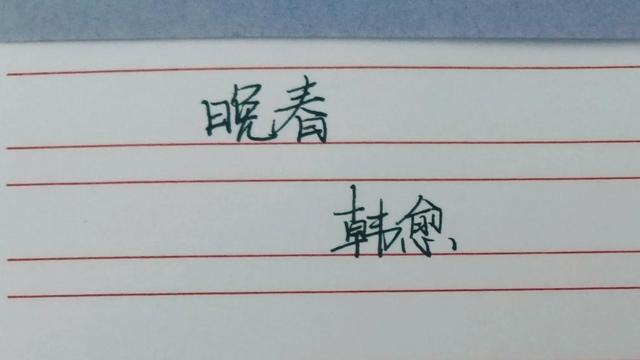 晚春
韩愈